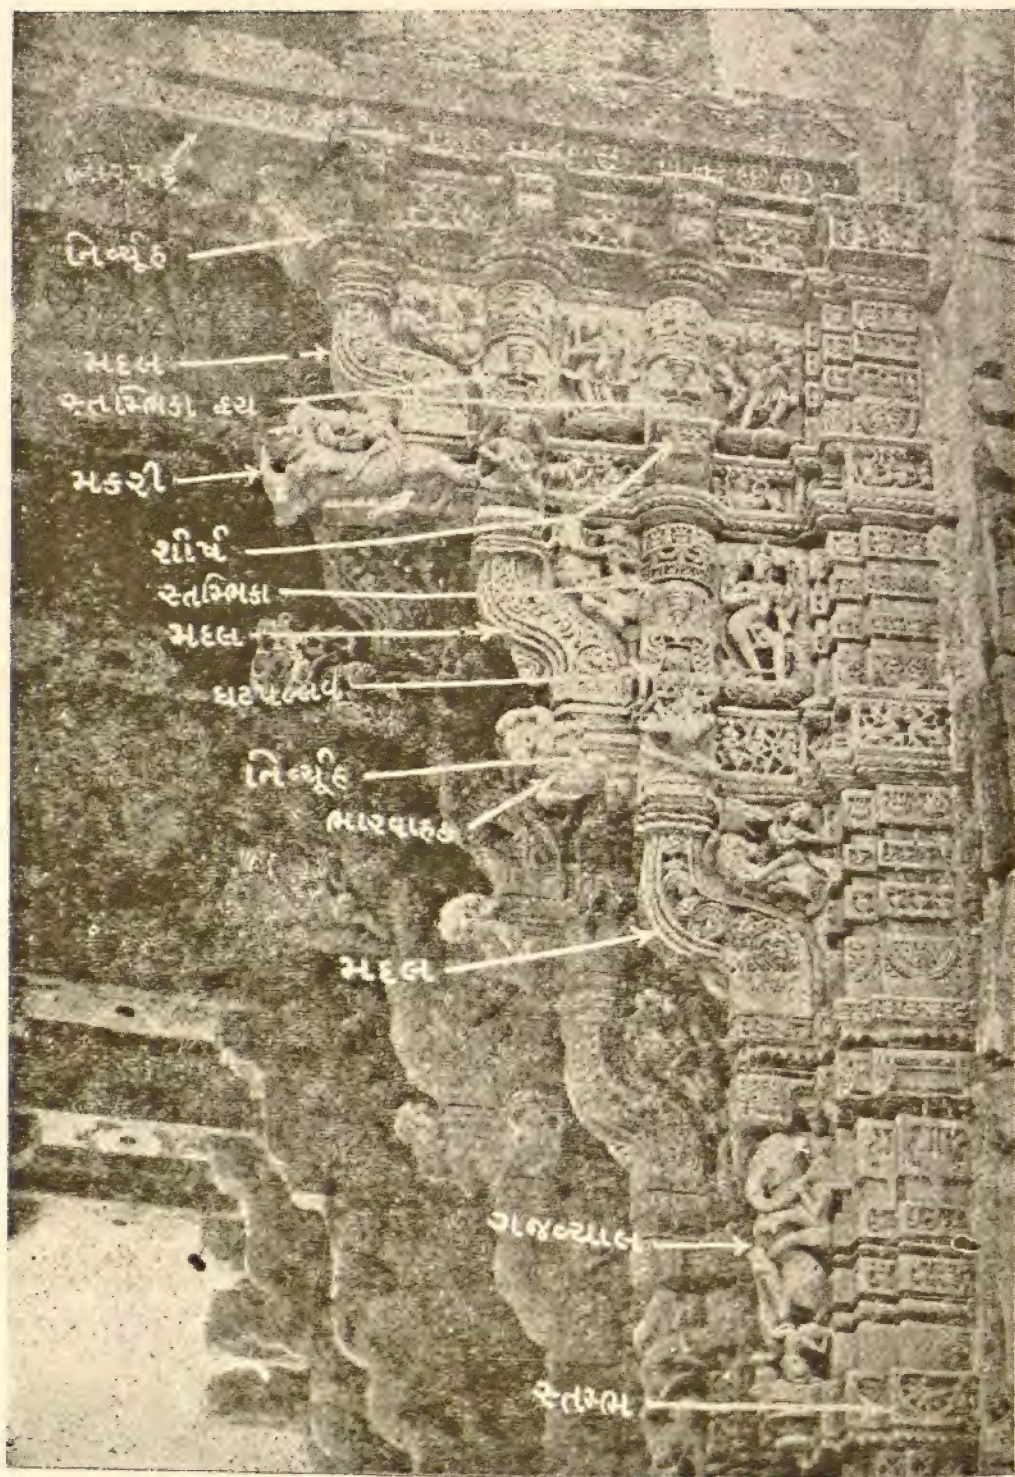 નિર્વ્યૂહ
મદલ
સ્તમ્ભિકા દ્વય
મકરી
શીર્ષ
સ્તમ્ભિકા
મદલ
ઘટપલ્લવ
નિર્વ્યૂહ
ભારવાહક
મદલ
ગજવ્યાલ
સ્તમ્ભ